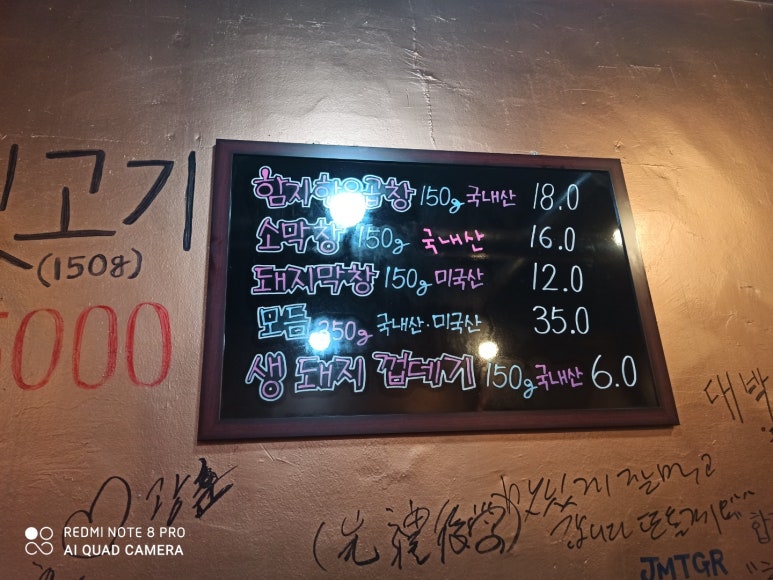 고기
(150g)
000
150g 국내산 18.0
소막창 150g 국내산 16.0
돼지막창 150g 미국산 12.0
모듬 350g 국내산·미국산 35.0
생 돼지 껍데기 150g 국내산 6.0
대박
맛있게 잘먹고
갑니다 또올게
(先禮後學)
JMTGR
REDMI NOTE 8 PRO
AI QUAD CAMERA